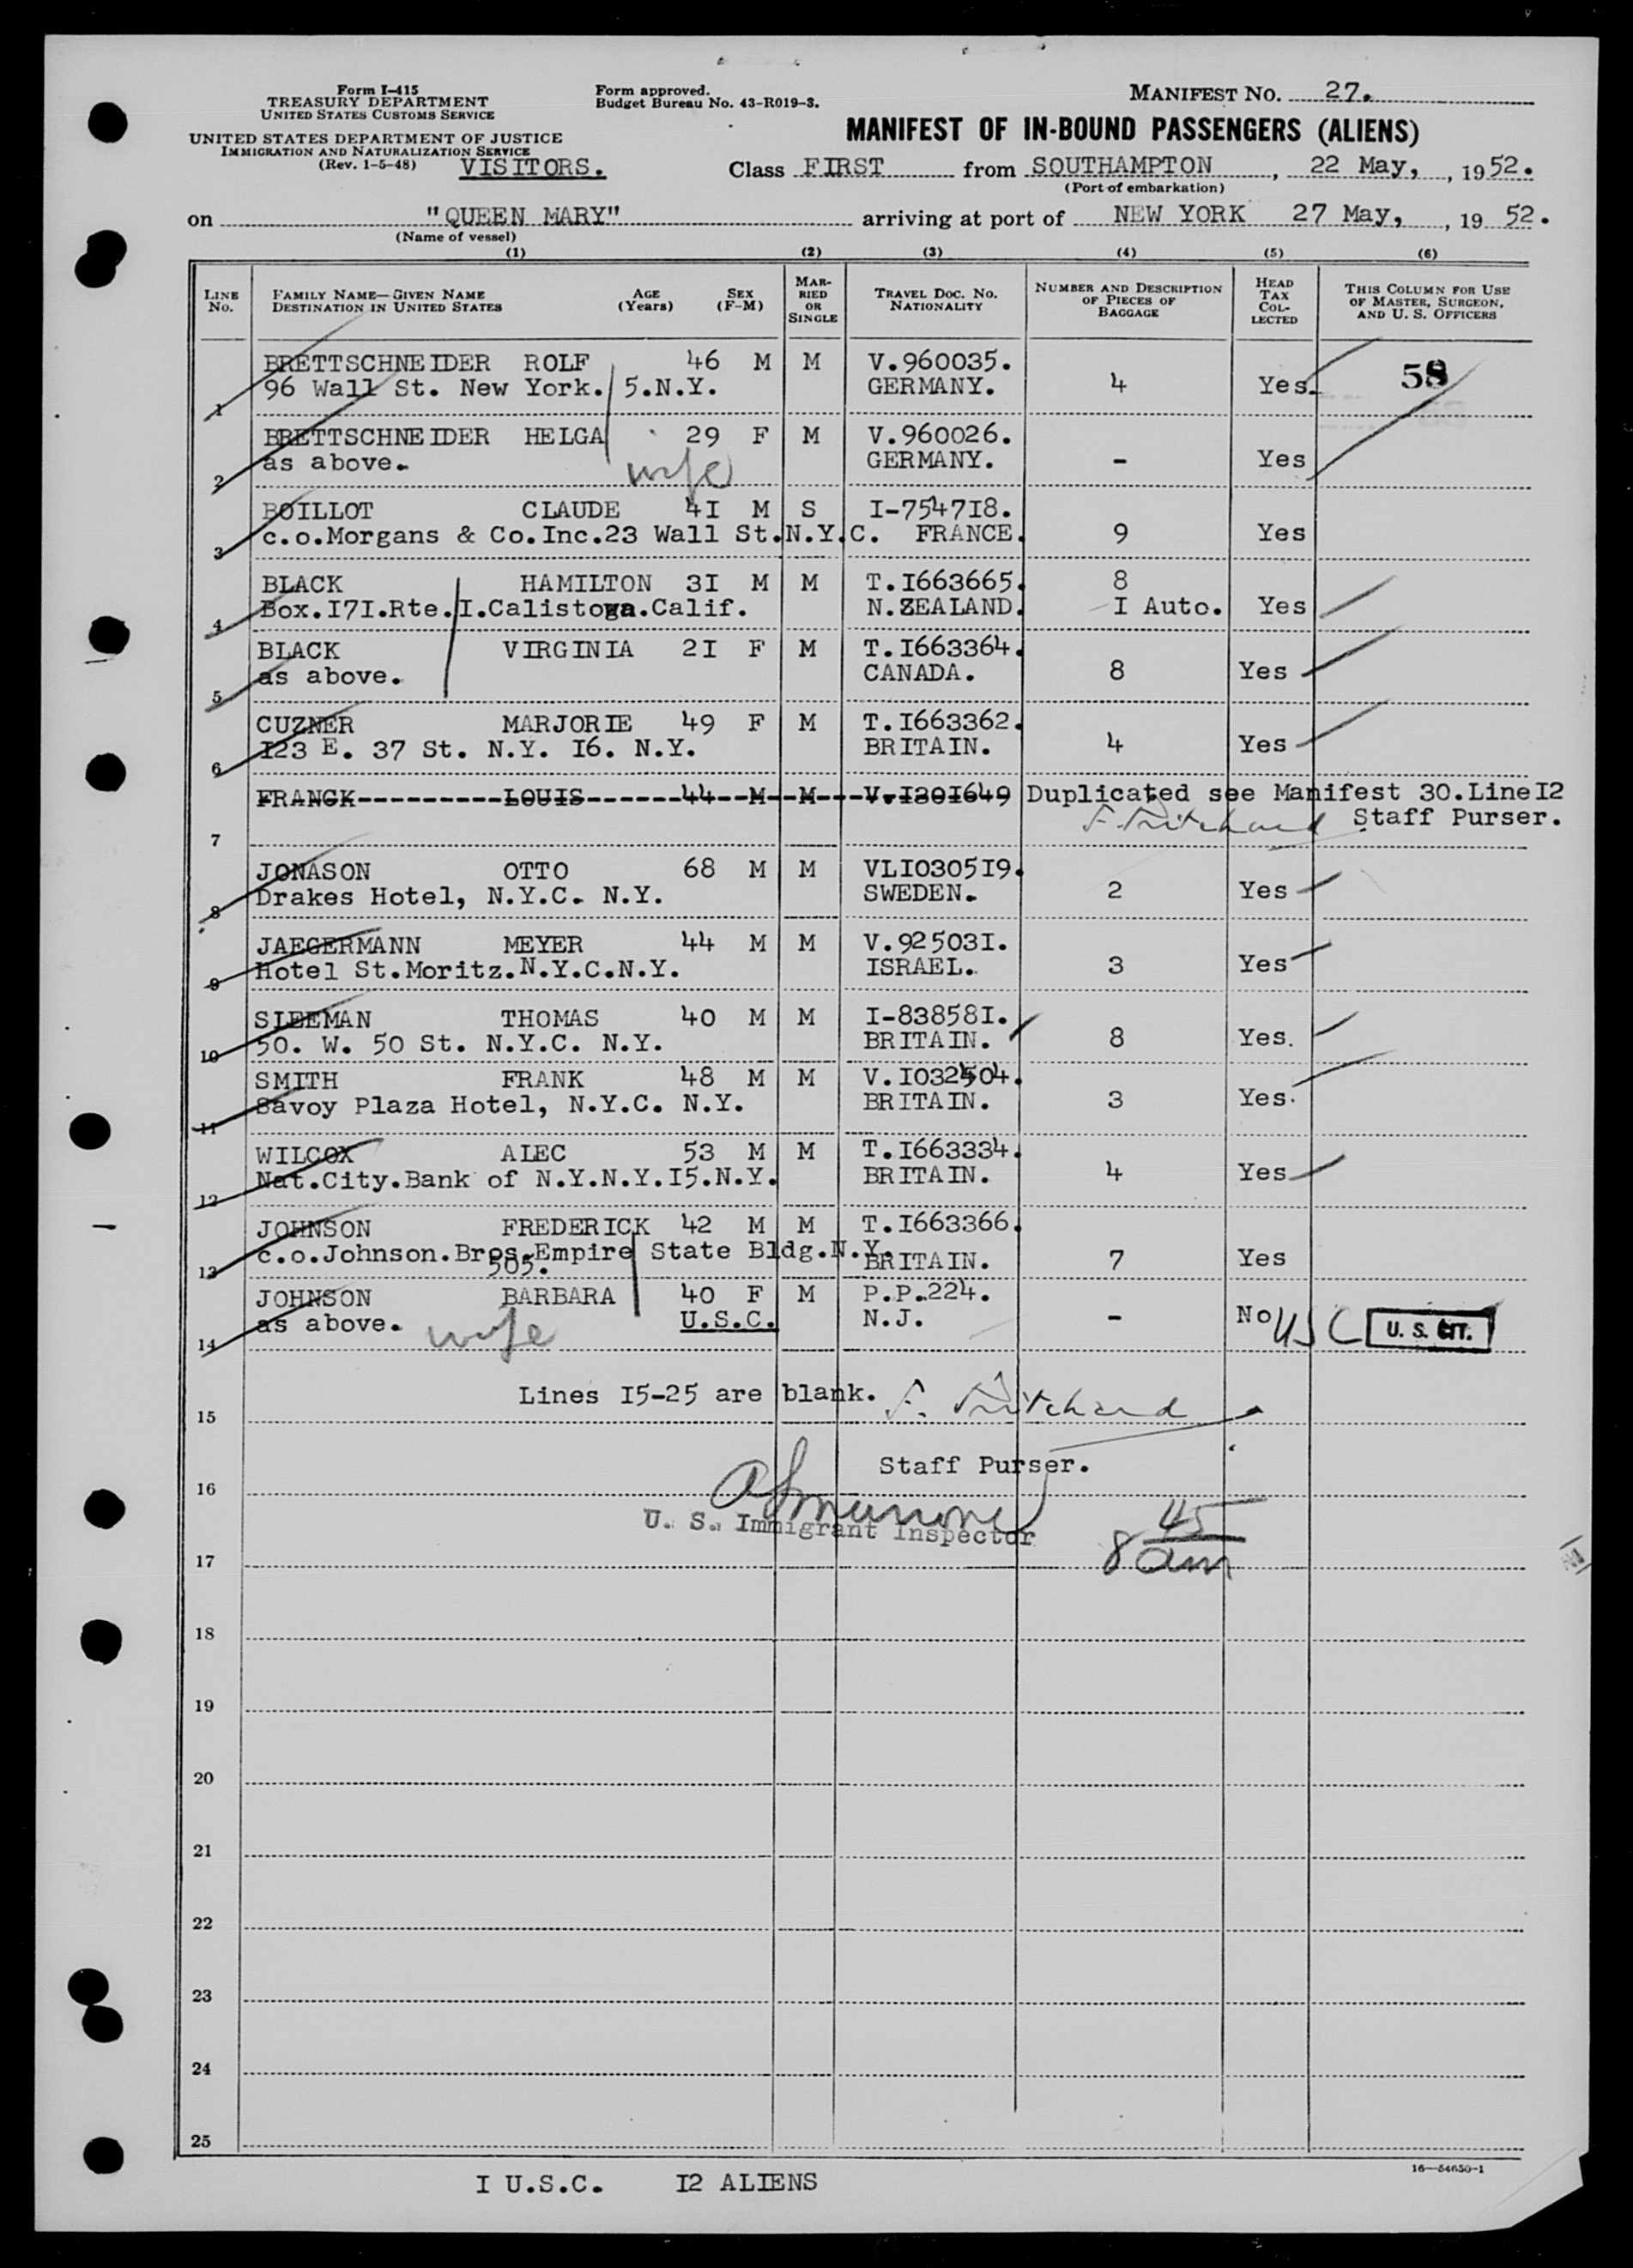 Form I-415
TREASURY DEPARTMENT
UNITED STATES CUSTOMS SERVICE
UNITED STATES DEPARTMENT OF JUSTICE
IMMIGRATION AND NATURALIZATION SERVICE
(Rev. 1-5-48) VISITORS.
Form approved.
Budget Bureau No. 43-R019-3.
MANIFEST NO. 27.
MANIFEST OF IN-BOUND PASSENGERS (ALIENS)
Class FIRST from SOUTHAMPTON, 22 May, 1952.
(Port of embarkation)
on "QUEEN MARY" arriving at port of NEW YORK 27 May, 19 52.
(Name of vessel)
(1) (2) (3) (4) (5) (6)
LINE NO. FAMILY NAME—GIVEN NAME DESTINATION IN UNITED STATES AGE (Years) SEX (F-M) MARRIED OR SINGLE TRAVEL DOC. NO. NATIONALITY NUMBER AND DESCRIPTION OF PIECES OF BAGGAGE HEAD TAX COLLECTED THIS COLUMN FOR USE OF MASTER, SURGEON, AND U. S. OFFICERS
BRETTSCHNEIDER ROLF 46 M M V.960035. 58
1 96 Wall St. New York. 5.N.Y. GERMANY. 4 Yes.
BRETTSCHNEIDER HELGA 29 F M V.960026.
2 as above. wife GERMANY. - Yes
BOILLOT CLAUDE 4I M S I-7547I8.
3 c.o.Morgans & Co.Inc.23 Wall St.N.Y.C. FRANCE. 9 Yes
BLACK HAMILTON 3I M M T.I663665. 8
4 Box.I7I.Rte.I.Calistoga.Calif. N.ZEALAND. I Auto. Yes
BLACK VIRGINIA 2I F M T.I663364.
5 as above. CANADA. 8 Yes
CUZNER MARJORIE 49 F M T.I663362.
6 I23 E. 37 St. N.Y. I6. N.Y. BRITAIN. 4 Yes
FRANCK----------LOUIS------44--M--M---V.I30I649 Duplicated see Manifest 30.LineI2
7 F. Pritchard Staff Purser.
JONASON OTTO 68 M M VLI0305I9.
8 Drakes Hotel, N.Y.C. N.Y. SWEDEN. 2 Yes
JAEGERMANN MEYER 44 M M V.92503I.
9 Hotel St.Moritz.N.Y.C.N.Y. ISRAEL. 3 Yes
SLEEMAN THOMAS 40 M M I-83858I.
10 50. W. 50 St. N.Y.C. N.Y. BRITAIN. 8 Yes.
SMITH FRANK 48 M M V.I032504.
11 Savoy Plaza Hotel, N.Y.C. N.Y. BRITAIN. 3 Yes.
WILCOX ALEC 53 M M T.I663334.
12 Nat.City.Bank of N.Y.N.Y.I5.N.Y. BRITAIN. 4 Yes
JOHNSON FREDERICK 42 M M T.I663366.
13 c.o.Johnson.Bros.Empire State Bldg.N.Y. BRITAIN. 7 Yes
505.
JOHNSON BARBARA 40 F M P.P.224.
14 as above. wife U.S.C. N.J. - No USC U. S. CIT.
Lines I5-25 are blank. F. Pritchard
15
Staff Purser.
16
U. S. Immigrant Inspector 8 45 am
17
18
19
20
21
22
23
24
25
16—54650-1
I U.S.C. I2 ALIENS